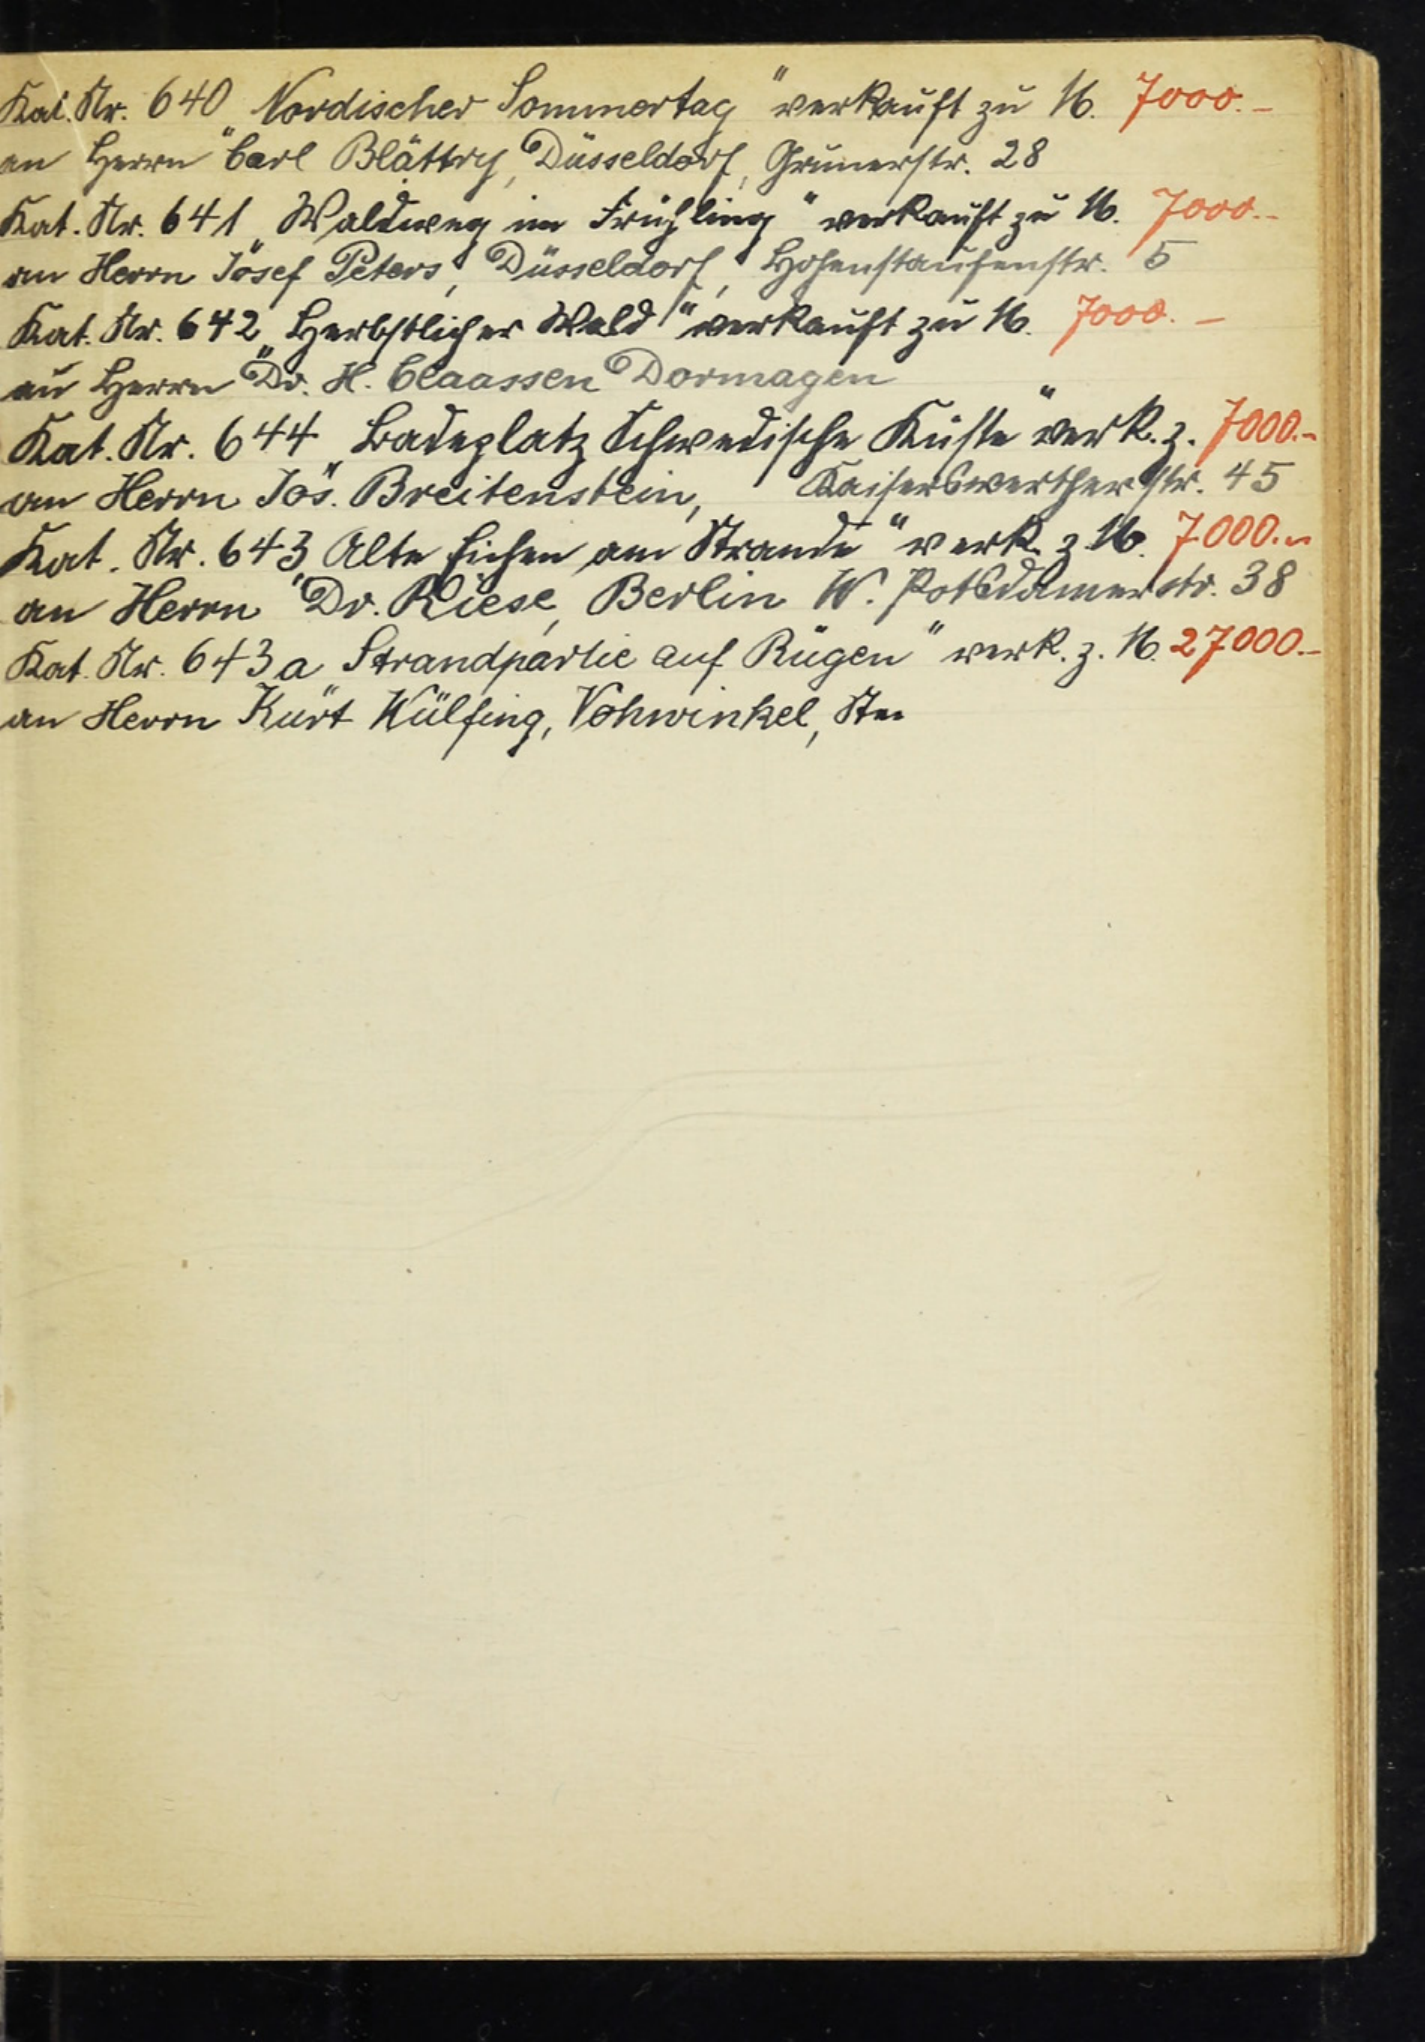 Kat. Nr. 640 „Nordischer Sommertag" verkauft zu M. 7000.–
an Herrn Carl Blättry, Düsseldorf, Grunerstr. 28
Kat. Nr. 641 „Waldweg im Frühling" verkauft zu M. 7000.–
an Herrn Josef Peters, Düsseldorf, Hohenstaufenstr. 5
Kat. Nr. 642 „Herbstlicher Wald" verkauft zu M. 7000.–
an Herrn Dr. H. Claassen Dormagen
Kat. Nr. 644 „Badeplatz Schwedische Küste" verk. z. 7000.–
an Herrn Jos. Breitenstein, Kaiserswertherstr. 45
Kat. Nr. 643 „Alte Eichen am Strande" verk. z M. 7000.–
an Herrn Dr. Riese, Berlin W. Potsdamerstr. 38
Kat. Nr. 643a Strandpartie auf Rügen" verk. z. M. 27000.–
an Herrn Kurt Wülfing, Vohwinkel,